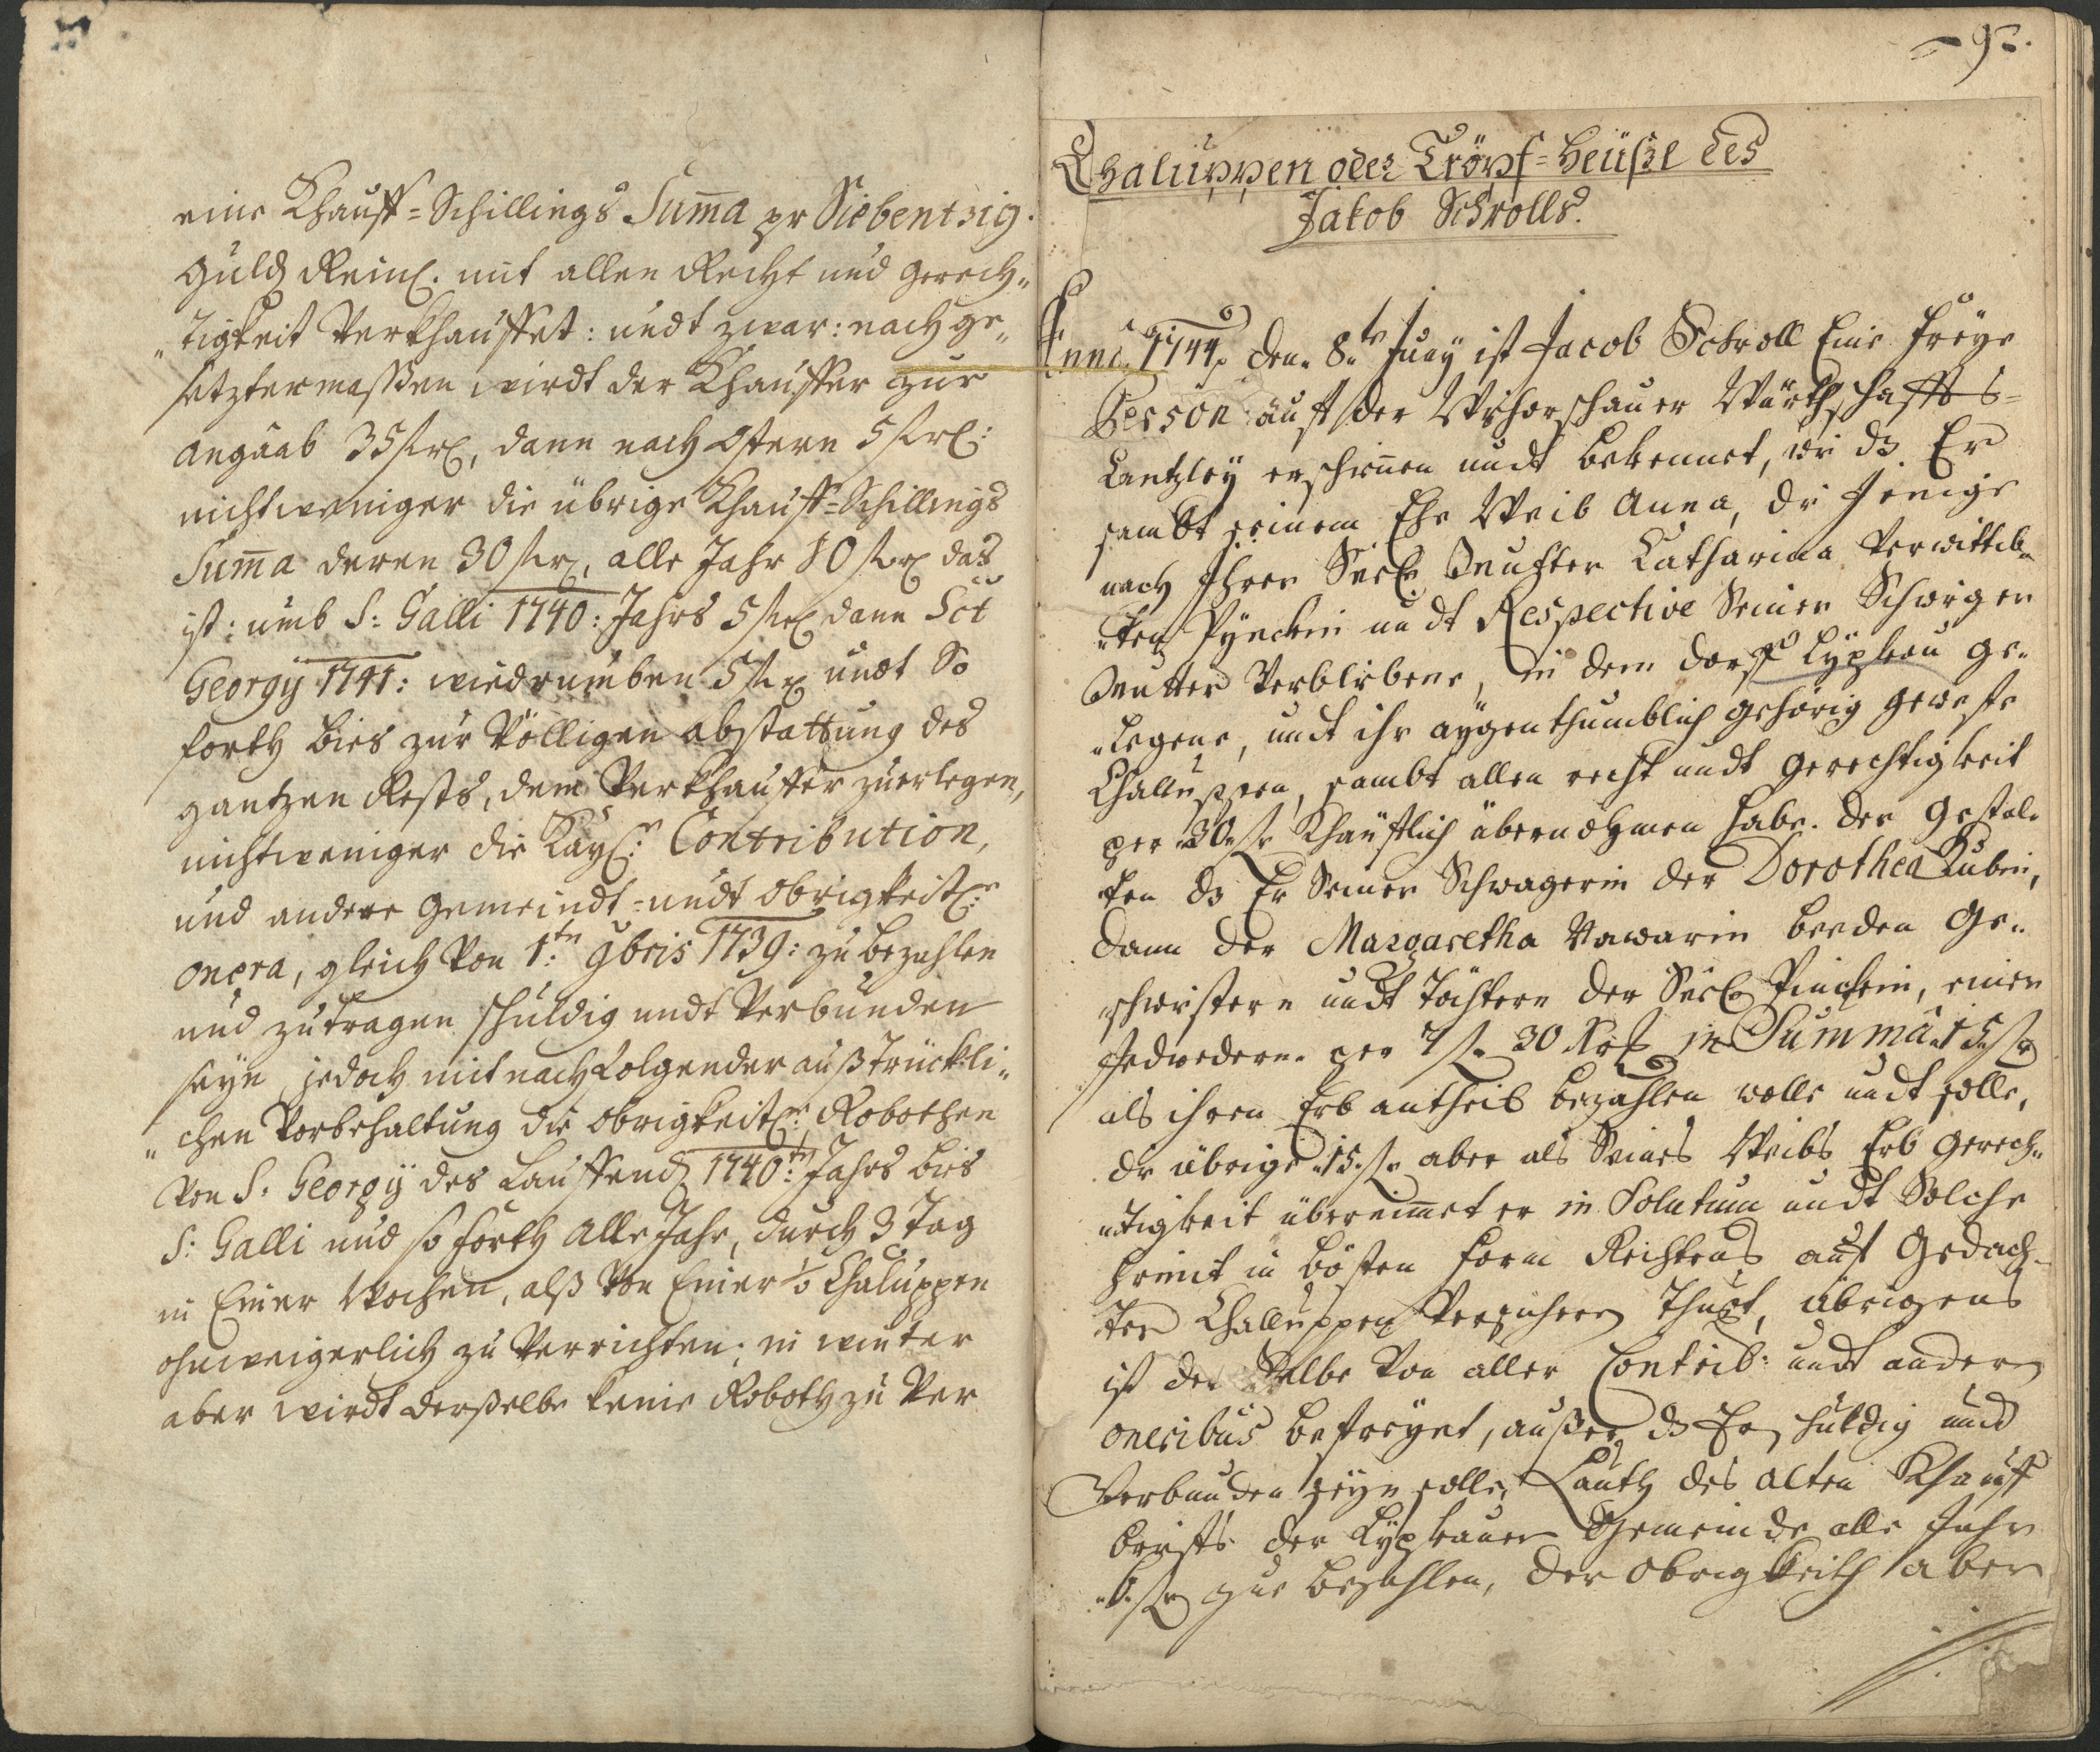 eine Khauff=Schillings Sum̄a pr Siebentzig
Guld Reinl. mit allen Recht und gerech„
„tigkeit Verkhauffet: undt zwar: nach ge„
setztermassen wirdt der Khauffer zur
angaab 35 flrl, dann nach Ostern 5 flrl:
nichtweniger die übrige Khauff=Schillings
Sum̄a deren 30 flr, alle Jahr 10 flrl das
ist: umb S: Galli 1740: Jahrs 5 flrl dann Sct
Georgÿ 1741: wiedrumben 5 flr undt So
forth bies zur Völligen abstattung des
gantzen Rests, dem Verkhauffer zuerlegen,
nichtweniger die Kaÿl:n Contribution,
und andere gemeindt=undt obrigkeitl:e
onera, gleich Von 1:tn 9bris 1739: zu bezahlen
und zutragen schuldig undt Verbunden
seÿn, jedoch mit nachfolgender außtrückli„
„chen Vorbehaltung die obrigkeitl:e Robothen
Von S: Georgÿ des Lauffend 1740:tn Jahrs bies
S: Galli und so forth alle Jahr, durch 3 Tag
in Einer Wochen, alß Von Einer Chaluppen
ohnweigerlich zu Verrichten; in winter
aber wirdt derßelbe keine Roboth zu Ver
92.
Chaluppen oder Tröpf=Heüßl des
Jakob Schrolls.
Anno 1744 den 8.te Juny ist Jacob Schroll Eine freÿe
Person auff der Wschorschauer Würthschaffts=
Cantzleÿ erschinen undt bekennet, wie dz Er
sambt seinem Ehe Weib Anna, die Jenige
nach Ihrer Seel. Mutter Catharina Verwittib„
„ten Pÿnckin undt Respective Seiner Schwiger
Mutter Verblibene, in dem dorf Lÿpkau ge„
„legene, undt ihr aÿgenthumblich gehörig geweste
Challuppen, sambt allen recht undt gerechtigkeit
per 30 fl Khäufflich übernohmen habe. der gestal„
ten dz Er Seiner Schwagerin der Dorothea Kubin,
dann der Margaretha Vawarin beeden Ge„
„schwistern undt Töchtern der Seel. Pinckin, einer
Jedwedern per 7 fl 30 Kr in Summa 15 fl
als ihren Erb antheil bezahlen wolle undt solle,
die übrige 15 fl aber als Seines Weibs Erb gerech„
„tigkeit übernim̄et er in Solutum undt Solche
hiemit in bösten form Rechtens auf Gedach„
ter Challuppen Versichern Thuet, übrigens
ist der Selbe Von aller Contrib: undt andern
oneribus befreÿet, außer dz Er schuldig und
Verbunden seÿn solle, Lauth des alten Khauff
brieffs der Lÿpkauer Gemeinde alle Jahr
fl zue bezahlen, der obrigkeith aber